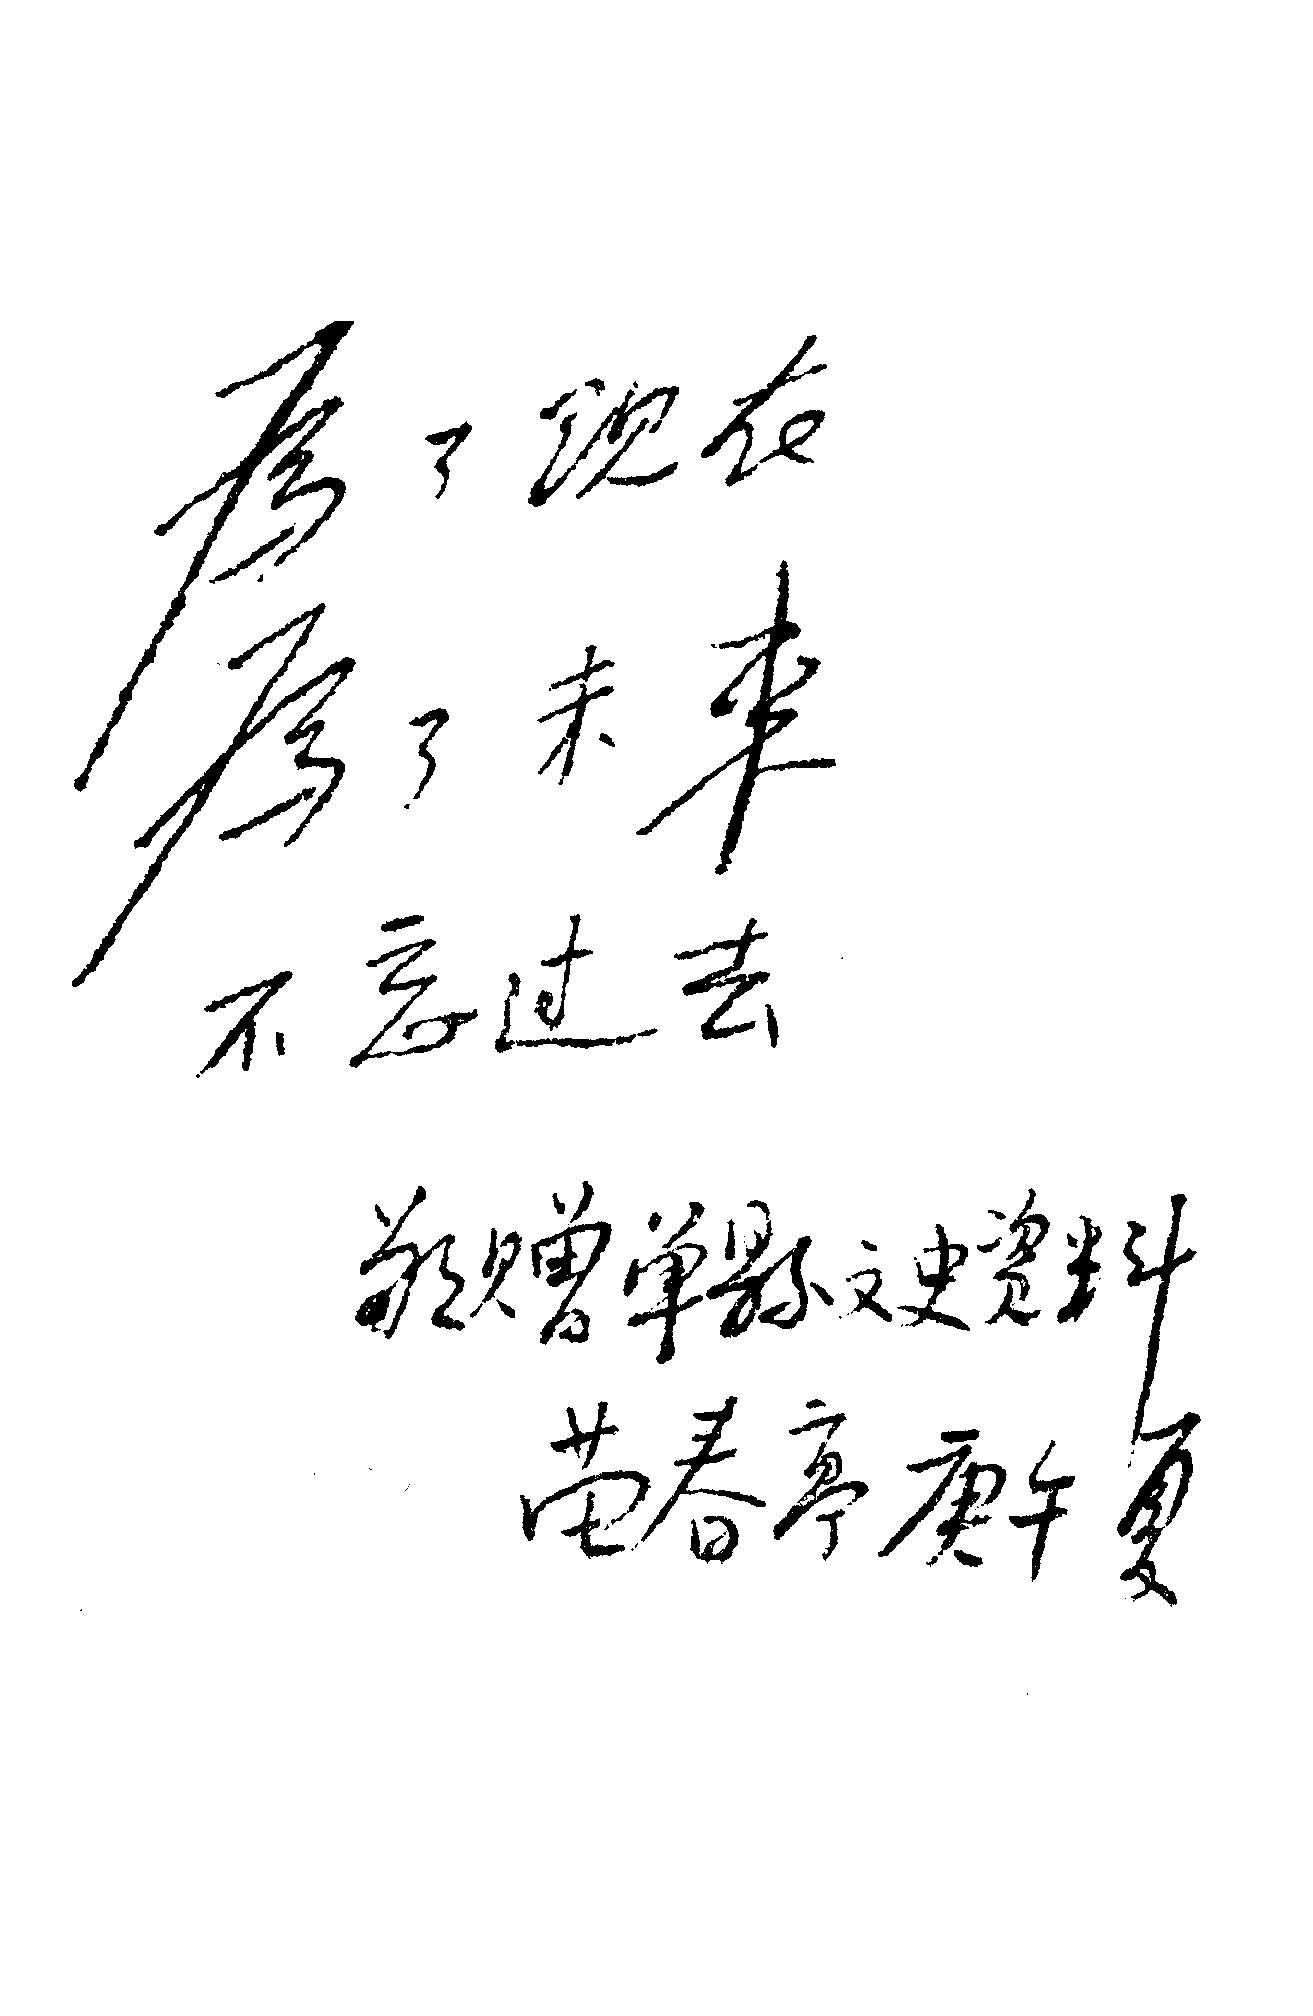 為了現在
為了未来
不忘过去
敬赠单縣文史资料
苗春亭庚午夏